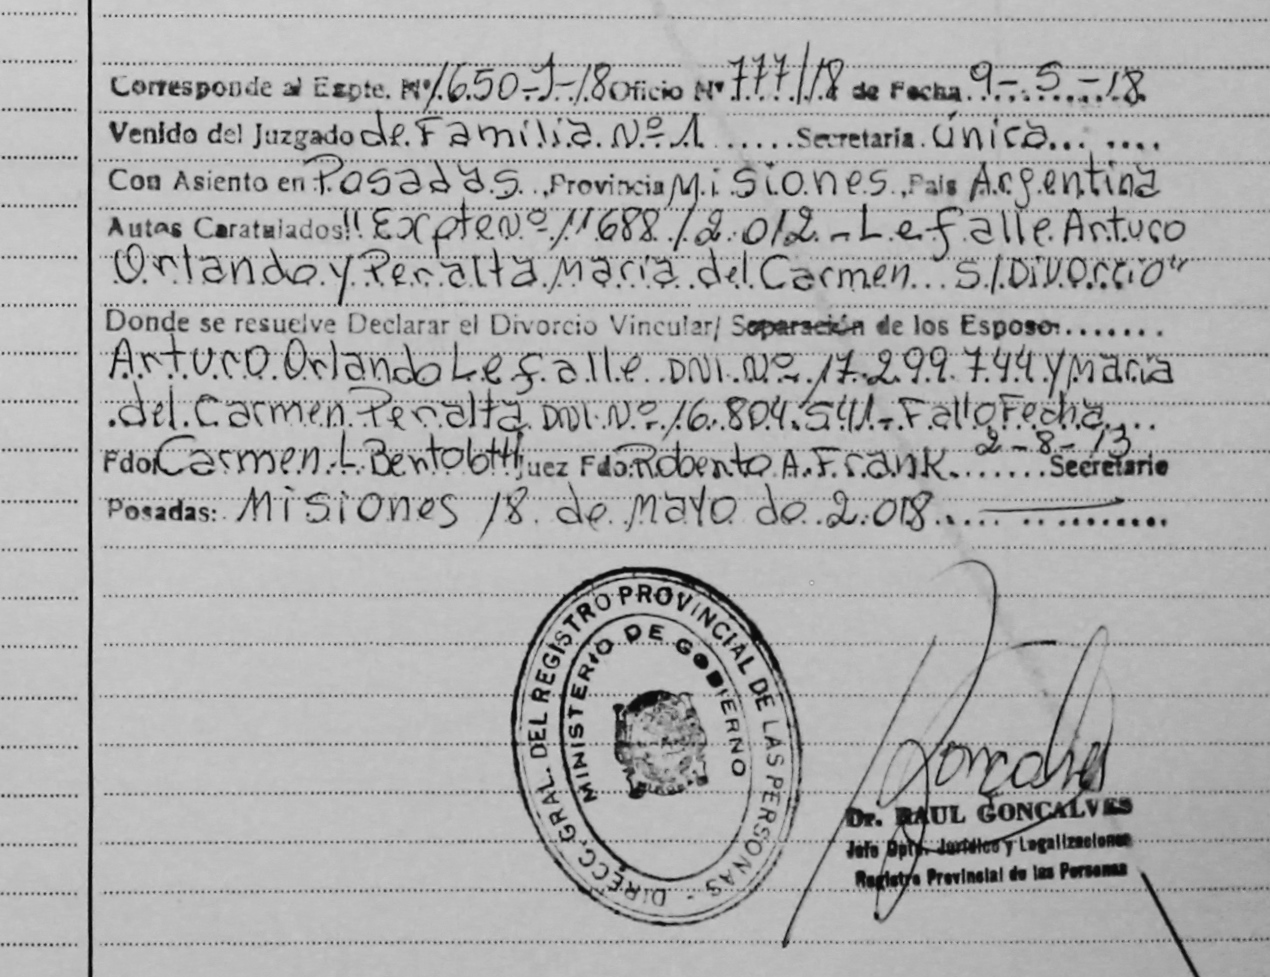 Corresponde al Expte. Nº 1.650-J-18 Oficio Nº 777/18 de Fecha 9-5-18
Venido del Juzgado de Familia Nº 1 ...... Secretaria Única... ....
Con Asiento en Posadas.. Provincia Misiones. Pais Argentina
Autos Caratulados "Expte Nº 11688/2.012 - Lefalle Arturo
Orlando y Peralta Maria del Carmen... S/Divorcio"
Donde se resuelve Declarar el Divorcio Vincular/ Separación de los Esposo: .......
Arturo Orlando Lefalle DNI. Nº 17.299.744 y Maria
del Carmen Peralta DNI. Nº 16.804.541 - Fallo Fecha...
2-8-13
Fdo: Carmen L. Bentolotti Juez Fdo: Robento A. Frank ....... Secretario
Posadas: Misiones 18 de Mayo de 2.018....
DIRECC. GRAL. DEL REGISTRO PROVINCIAL DE LAS PERSONAS -
MINISTERIO DE GOBIERNO
Gonçalves
Dr. RAUL GONCALVES
Jefe Dpto. Jurídico y Legalizaciones
Registro Provincial de las Personas